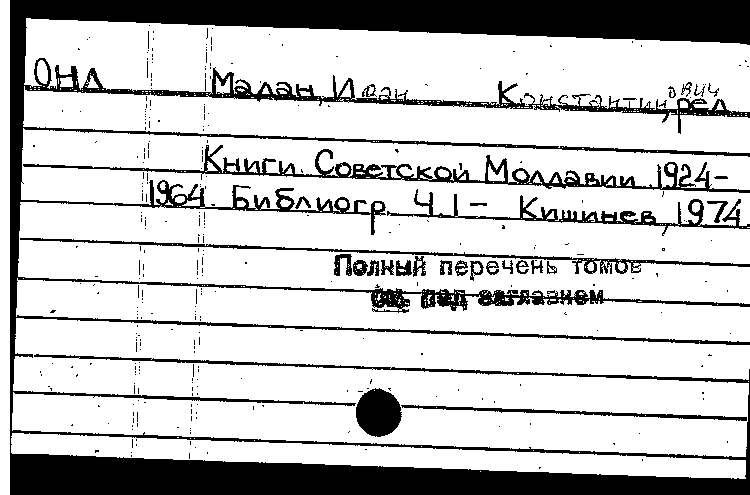 ОНЛ Мадан, Иван Константинович, ред.
Книги Советской Молдавии 1924-
1964. Библиогр. Ч. 1 - Кишинев, 1974.
Полный перечень томов
см. под заглавием